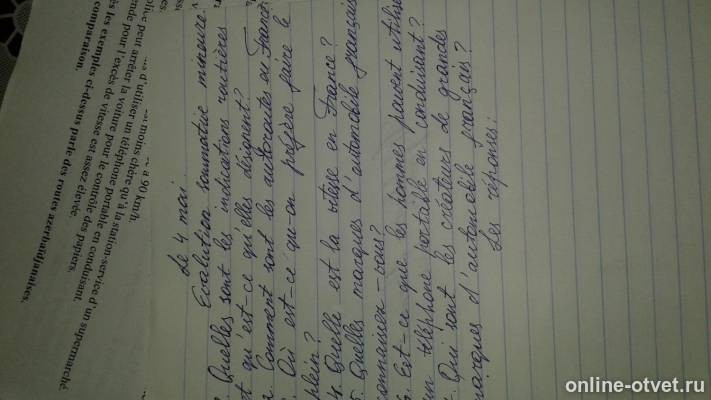 la moins chère qu'à la station-service d'un supermarché.
d'utiliser un téléphone portable en conduisant.
lice peut arrêter la voiture pour le contrôle des papiers.
nde pour l'excès de vitesse est assez élevée.
ès les exemples ci-dessus parle des routes azerbaïdjanaises.
comparaison.
à 90 km/h.
Le 4 mai.
Evalution sommative mineure
Quelles sont les indications routières
et qu'est-ce qu'elles désignent?
2. Comment sont les autoroutes en France
Où est-ce qu-on préfère faire le
plein?
4. Quelle est la vitesse en France?
5. Quelles marques d'automobile français
connaissez-vous?
6. Est-ce que les hommes peuvent utilise
un téléphone portable en conduisant?
Qui sont les créateurs de grandes
marques d'automobile français?
Les réponses:
online-otvet.ru